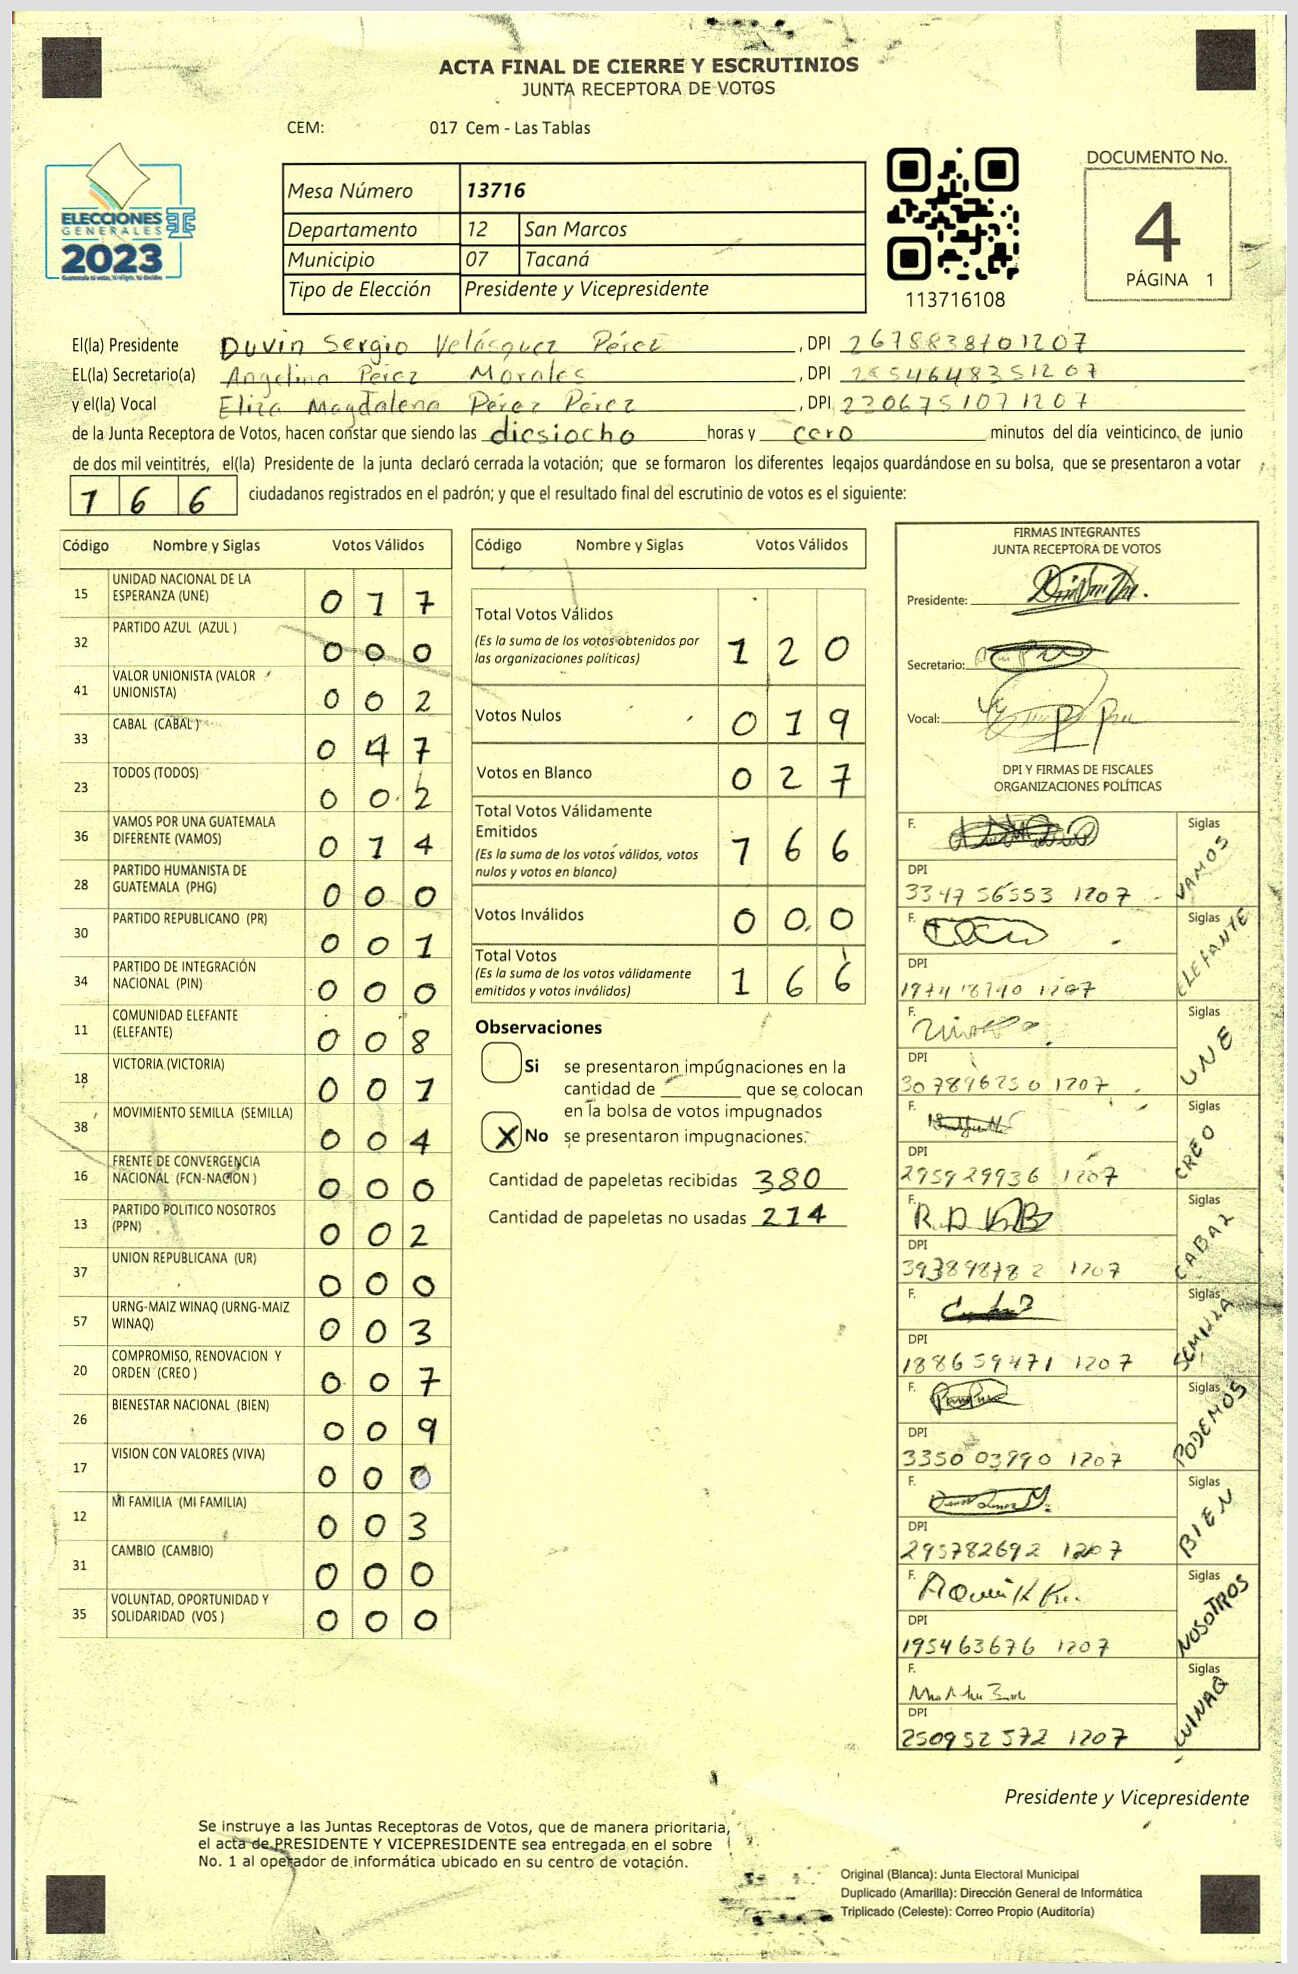 ACTA FINAL DE CIERRE Y ESCRUTINIOS
JUNTA RECEPTORA DE VOTOS
CEM: 017 Cem - Las Tablas
ELECCIONES
GENERALES
2023
Mesa Número 13716
Departamento 12 San Marcos
Municipio 07 Tacaná
Tipo de Elección Presidente y Vicepresidente
113716108
DOCUMENTO No.
4
PÁGINA 1
El(la) Presidente Duvin Sergio Velásquez Pérez, DPI 2678838701207
EL(la) Secretario(a) Angelina Pérez Morales, DPI
y el(la) Vocal Eliza Magdalena Pérez Pérez, DPI 2306751071207
de la Junta Receptora de Votos, hacen constar que siendo las diesiocho horas y cero minutos del día veinticinco de junio
de dos mil veintitrés, el(la) Presidente de la junta declaró cerrada la votación; que se formaron los diferentes legajos guardándose en su bolsa, que se presentaron a votar
166 ciudadanos registrados en el padrón; y que el resultado final del escrutinio de votos es el siguiente:
Código Nombre y Siglas Votos Válidos
15 UNIDAD NACIONAL DE LA ESPERANZA (UNE) 017
32 PARTIDO AZUL (AZUL ) 000
41 VALOR UNIONISTA (VALOR UNIONISTA) 002
33 CABAL (CABAL ) 047
23 TODOS (TODOS) 002
36 VAMOS POR UNA GUATEMALA DIFERENTE (VAMOS) 014
28 PARTIDO HUMANISTA DE GUATEMALA (PHG) 000
30 PARTIDO REPUBLICANO (PR) 001
34 PARTIDO DE INTEGRACIÓN NACIONAL (PIN) 000
11 COMUNIDAD ELEFANTE (ELEFANTE) 008
18 VICTORIA (VICTORIA) 001
38 MOVIMIENTO SEMILLA (SEMILLA) 004
16 FRENTE DE CONVERGENCIA NACIONAL (FCN-NACION ) 000
13 PARTIDO POLITICO NOSOTROS (PPN) 002
37 UNION REPUBLICANA (UR) 000
57 URNG-MAIZ WINAQ (URNG-MAIZ WINAQ) 003
20 COMPROMISO, RENOVACION Y ORDEN (CREO ) 007
26 BIENESTAR NACIONAL (BIEN) 009
17 VISION CON VALORES (VIVA) 000
12 MI FAMILIA (MI FAMILIA) 003
31 CAMBIO (CAMBIO) 000
35 VOLUNTAD, OPORTUNIDAD Y SOLIDARIDAD (VOS ) 000
Código Nombre y Siglas Votos Válidos
Total Votos Válidos
(Es la suma de los votos obtenidos por
las organizaciones políticas) 120
Votos Nulos 019
Votos en Blanco 027
Total Votos Válidamente
Emitidos
(Es la suma de los votos válidos, votos
nulos y votos en blanco) 166
Votos Inválidos 000
Total Votos
(Es la suma de los votos válidamente
emitidos y votos inválidos) 166
Observaciones
Si se presentaron impugnaciones en la
cantidad de ________ que se colocan
en la bolsa de votos impugnados
X No se presentaron impugnaciones.
Cantidad de papeletas recibidas 380
Cantidad de papeletas no usadas 214
FIRMAS INTEGRANTES
JUNTA RECEPTORA DE VOTOS
Presidente:
Secretario:
Vocal:
DPI Y FIRMAS DE FISCALES
ORGANIZACIONES POLÍTICAS
F. Siglas VAMOS
DPI
3347 56553 1207
F. Siglas ELEFANTE
DPI
F. Siglas UNE
DPI
307896250 1207
F. Siglas CREO
DPI
295929936 1207
F. Siglas CABAL
DPI
393898782 1207
F. Siglas SEMILLA
DPI
188659471 1207
F. Siglas PODEMOS
DPI
3350 03990 1207
F. Siglas BIEN
DPI
295782692 1207
F. Siglas NOSOTROS
DPI
195463676 1207
F. Siglas WINAQ
DPI
250952572 1207
Presidente y Vicepresidente
Se instruye a las Juntas Receptoras de Votos, que de manera prioritaria,
el acta de PRESIDENTE Y VICEPRESIDENTE sea entregada en el sobre
No. 1 al operador de informática ubicado en su centro de votación.
Original (Blanca): Junta Electoral Municipal
Duplicado (Amarilla): Dirección General de Informática
Triplicado (Celeste): Correo Propio (Auditoría)